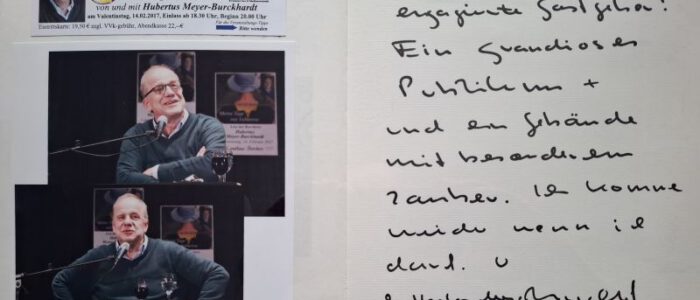 von und mit Hubertus Meyer-Burckhardt
am Valentinstag, 14.02.2017, Einlass ab 18.30 Uhr, Beginn 20.00 Uhr
Eintrittskarte: 19,50 € zzgl. VVK-gebühr, Abendkasse 22,-€
Bitte wenden
Hubertus
Meyer-Burckhardt
engagierte Gastgeber!
Ein grandioses
Publikum +
und ein Gebäude
mit besonderem
Zauber. Ich komme
wieder wenn ich
darf.